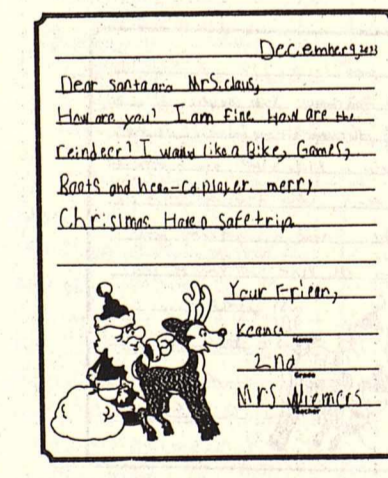 December 9, 2023
Dear santa ara Mrs. claus,
How are you? I am fine. How are the
reindeer? I would like a Bike, Games,
Boots and player. merry
Christmas. Have a safe trip
Your Frien,
Name
2nd
Grade
Mrs Niemers
Teacher